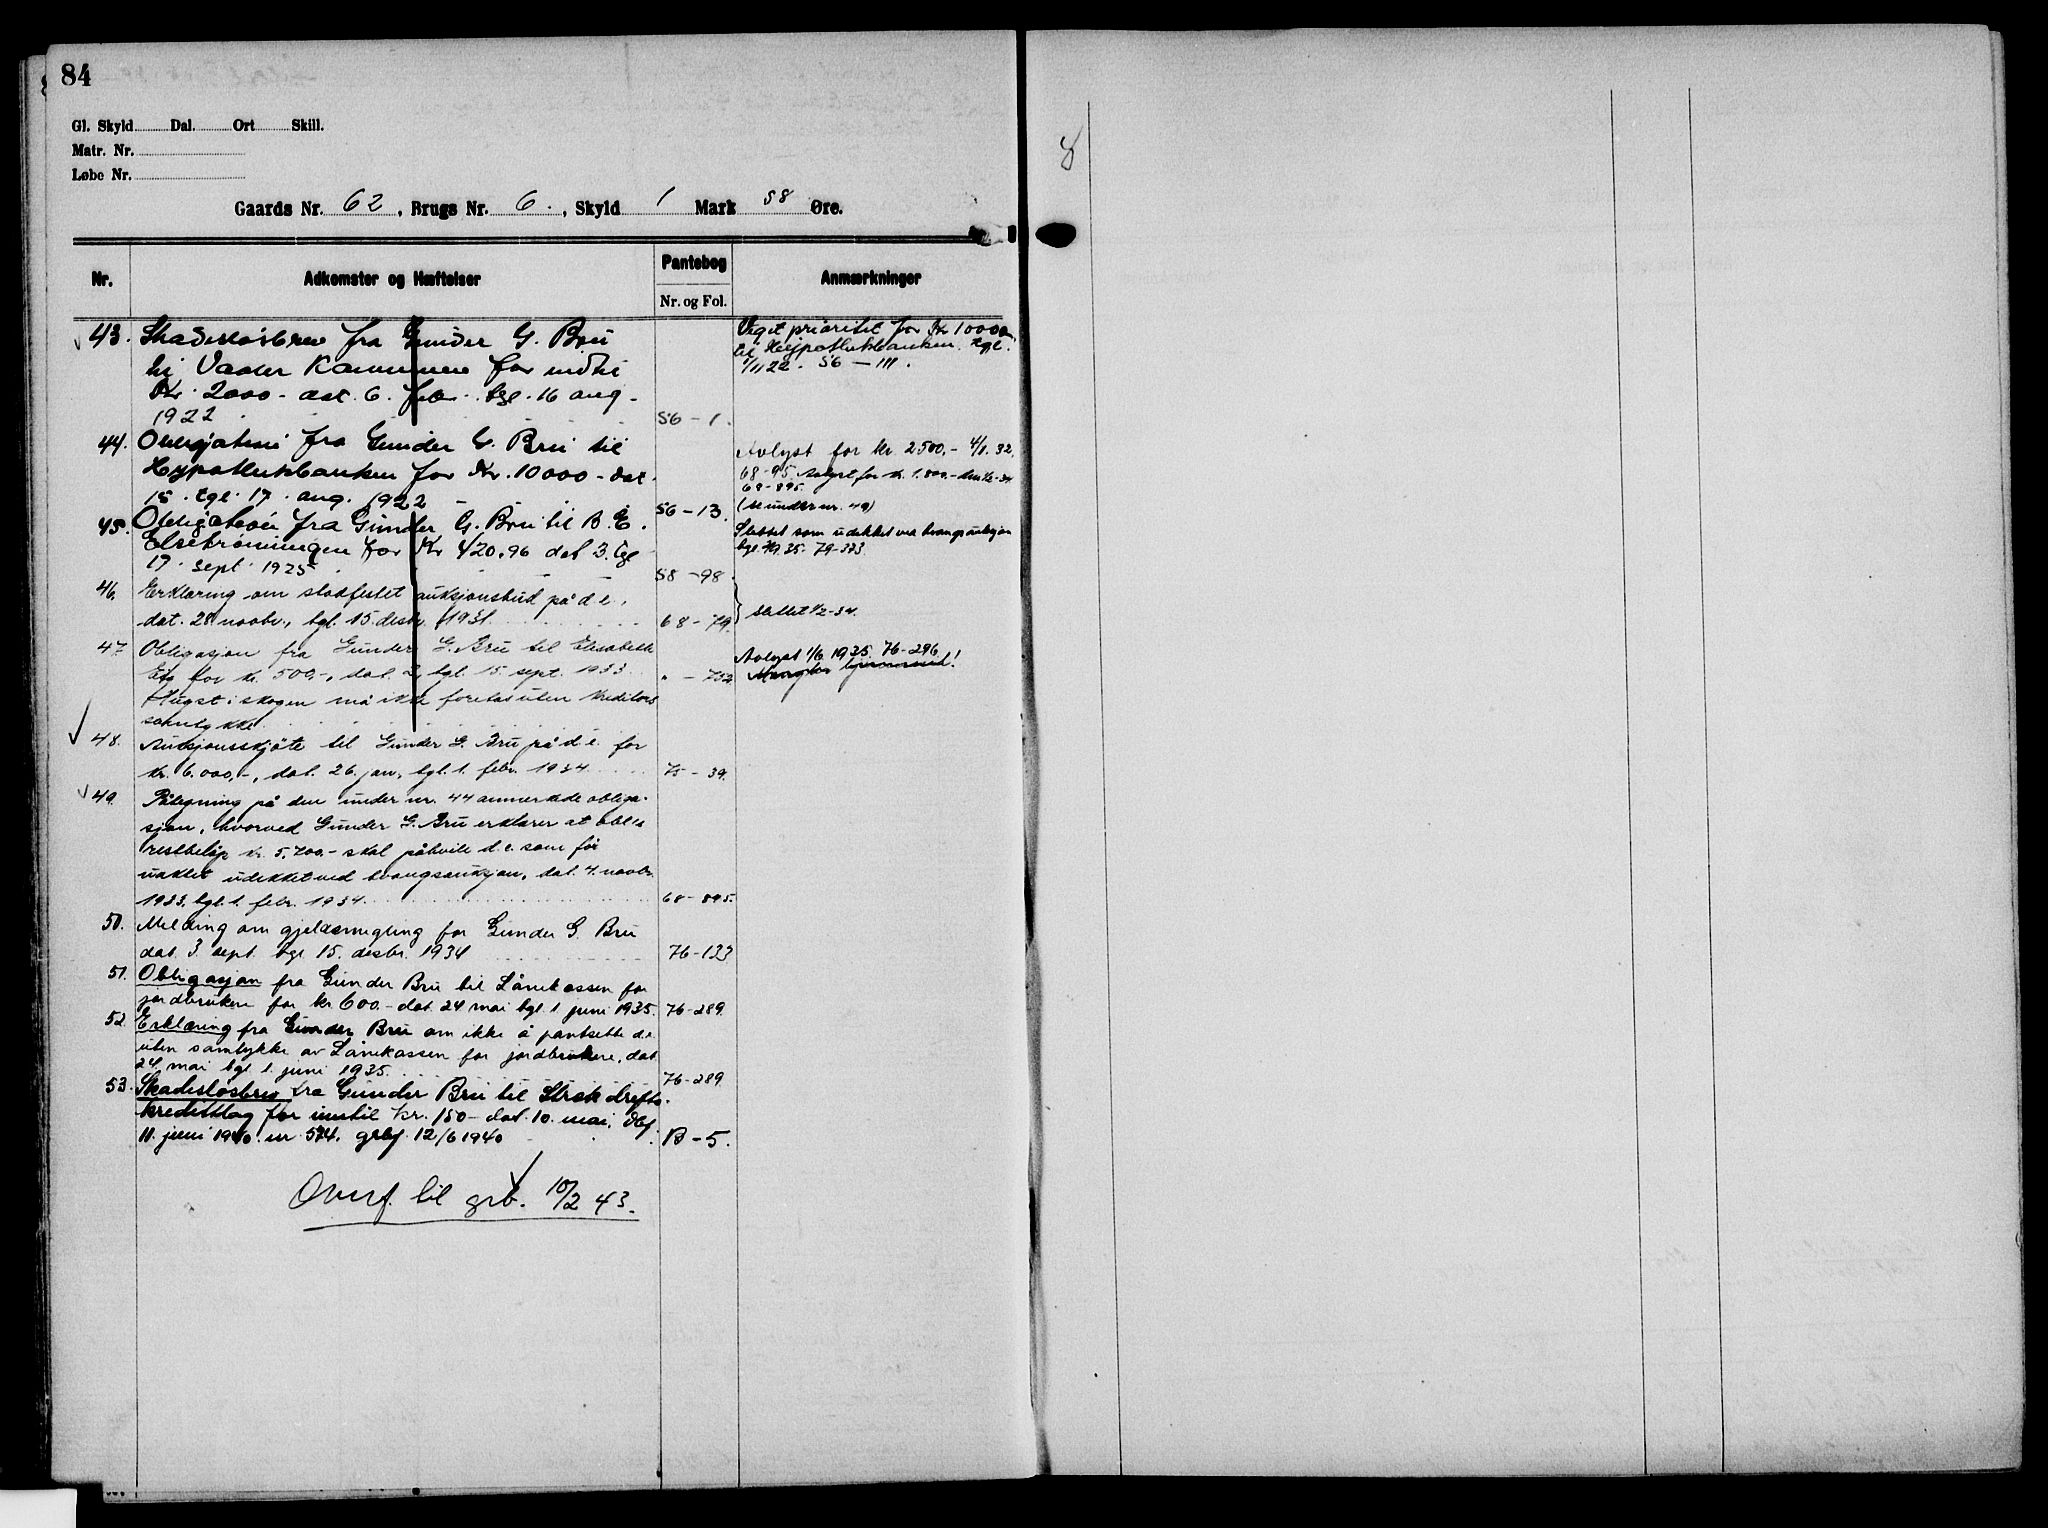 84
Gl. Skyld Dal. Ort Skill.
Matr. Nr.
Løbe Nr.
Gaards Nr. 62, Brugs Nr. 6., Skyld 1 Mark 58 Øre.
Nr. Adkomster og Hæftelser Pantebog Nr. og Fol. Anmærkninger
43. Skadesløsbrev fra Gunder G. Bru
til Vaaler Kommune for indtil
Kr. 2000 - dat. 6. febr. tgl. 16 aug.
1922 56 - 1.
Veget prioritet for Kr 10000
til Hypothekbanken. tgl.
1/11 22. 56 - 111.
44. Obligation fra Gunder G. Bru til
Hypothekbanken for Kr. 10000 - dat.
15. tgl. 17. aug. 1922 56 - 13.
Avlyst for kr. 2500,- 4/1. 32.
68-95. Avlyst for kr. 1.800.-
68-895.
(se under nr. 49)
45. Obligation fra Gunder G. Bru til B. E.
for Kr 420.96 dat 3. tgl
17. sept. 1925 58 - 98.
Slettet som udekket ved tvangsauksjon
79-323
46. Erklæring om stadfestet auksjonsbud på d.e.,
dat. 28. novbr., tgl. 15. desbr. 1931. 68 - 79.
slettet 1/2-34.
47. Obligasjon fra Gunder G. Bru til Elisabeth
for kr. 500,-, dat. 2, tgl. 15. sept. 1933. " - 752
Hugst i skogen må ikke foretas uten kreditors
samtykke.
Avlyst 1/6 1935. 76-296.
48. Auksjonsskjöte til Gunder G. Bru på d.e. for
kr. 6.000,-, dat. 26. jan., tgl. 1. febr. 1934. 75 - 39.
49. Påtegning på den under nr. 44 anmerkede obliga-
sjon, hvorved Gunder G. Bru erklærer at obl.s
restbeløp kr. 5.700.- skal påhvile d.e. som før
uaktet udekket ved tvangsauksjon, dat. 4. novbr.
1933, tgl. 1. febr. 1934. 68 - 895.
50. Melding om gjeldsmegling for Gunder G. Bru
dat. 3. sept. tgl. 15. desbr. 1934 76-133
51. Obligasjon fra Gunder Bru til Lånekassen for
jordbrukere for kr 600.- dat. 24 mai tgl. 1 juni 1935. 76-289.
52. Erklæring fra Gunder Bru om ikke å pantsette d.e.
uten samtykke av Lånekassen for jordbrukere, dat.
24. mai tgl. 1. juni 1935. 76-289
53. Skadesløsbrev fra Gunder Bru til Strøk drifts-
kredittlag for inntil kr. 150 - dat. 10. mai, dbf.
11. juni 1940. nr. 574. grbf. 12/6 1940 B - 5.
Overf. til grb. 10/2 43.
8